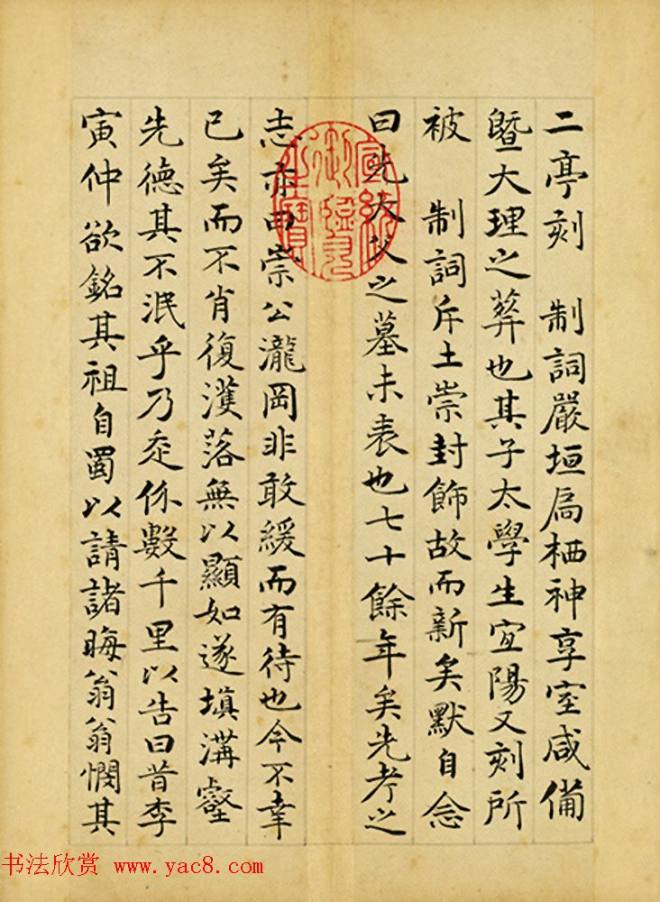 二亭刻　制詞嚴垣扃栖神享室咸備
暨大理之葬也其子太學生宜陽又刻所
被　制詞斥土崇封飾故而新矣默自念
曰先大父之墓未表也七十餘年矣先考之
志亦曰崇公瀧岡非敢緩而有待也今不幸
已矣而不肖復濩落無以顯如遂填溝壑
先德其不泯乎乃走伻數千里以告曰昔李
寅仲欲銘其祖自蜀以請諸晦翁翁憫其
宣統御覽之寶
书法欣赏 www.yac8.com